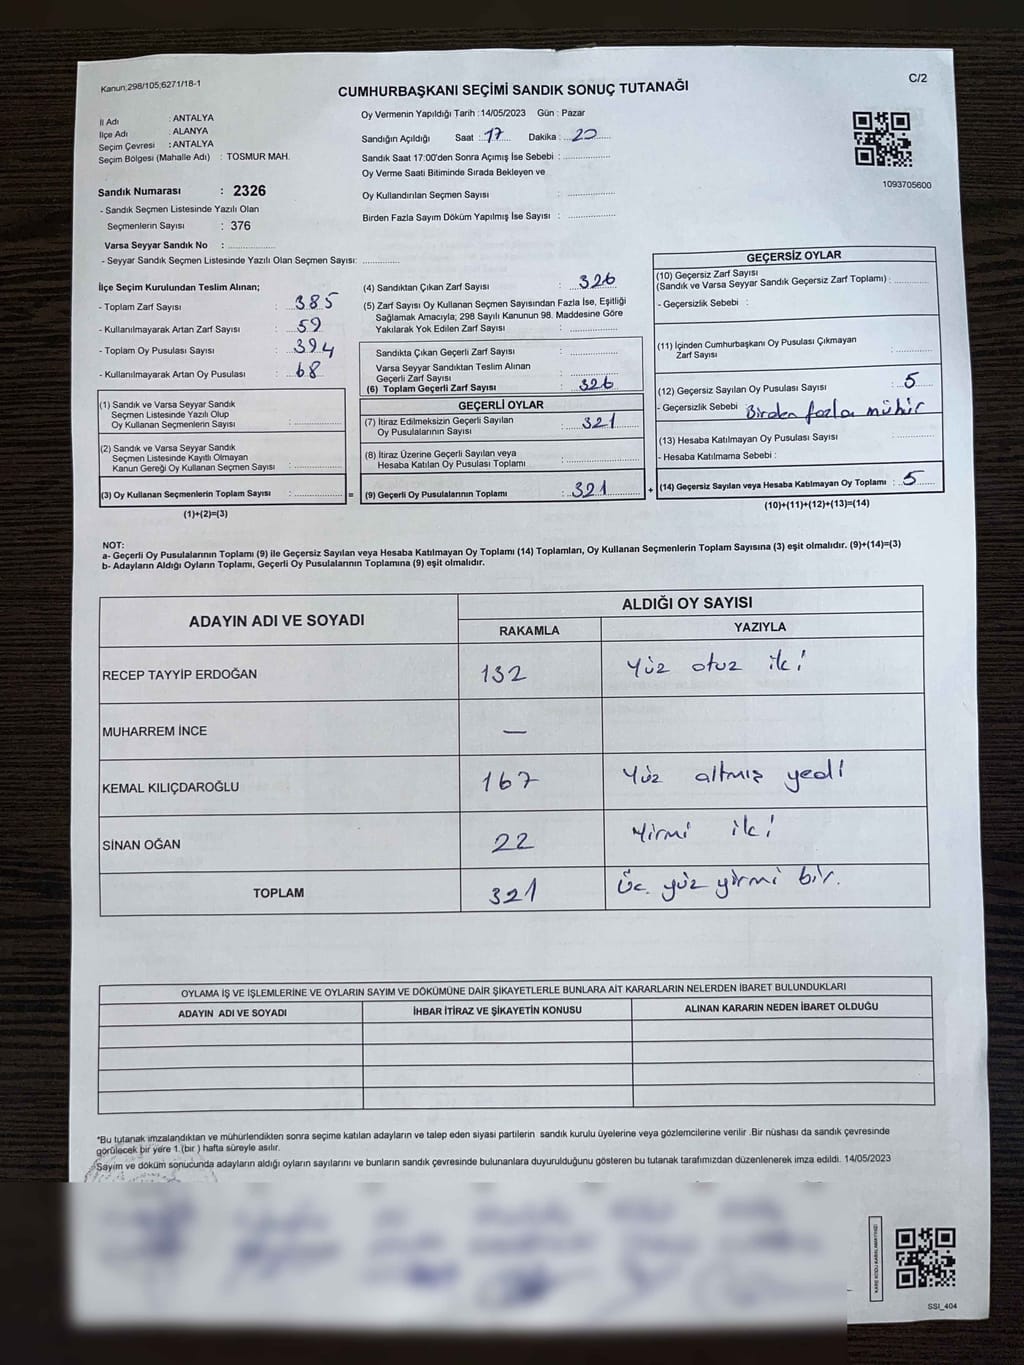 Kanun;298/105;6271/18-1
C/2
CUMHURBAŞKANI SEÇİMİ SANDIK SONUÇ TUTANAĞI
İl Adı : ANTALYA
İlçe Adı : ALANYA
Seçim Çevresi : ANTALYA
Seçim Bölgesi (Mahalle Adı) : TOSMUR MAH.
Sandık Numarası : 2326
- Sandık Seçmen Listesinde Yazılı Olan
Seçmenlerin Sayısı : 376
Varsa Seyyar Sandık No : ................
- Seyyar Sandık Seçmen Listesinde Yazılı Olan Seçmen Sayısı: .............
Oy Vermenin Yapıldığı Tarih :14/05/2023 Gün : Pazar
Sandığın Açıldığı Saat : 17 Dakika : 20
Sandık Saat 17:00'den Sonra Açımış İse Sebebi : ................
Oy Verme Saati Bitiminde Sırada Bekleyen ve
Oy Kullandırılan Seçmen Sayısı : ................
Birden Fazla Sayım Döküm Yapılmış İse Sayısı : ................
1093705600
İlçe Seçim Kurulundan Teslim Alınan;
- Toplam Zarf Sayısı : 385
- Kullanılmayarak Artan Zarf Sayısı : 59
- Toplam Oy Pusulası Sayısı : 394
- Kullanılmayarak Artan Oy Pusulası : 68
(1) Sandık ve Varsa Seyyar Sandık
Seçmen Listesinde Yazılı Olup
Oy Kullanan Seçmenlerin Sayısı : ................
(2) Sandık ve Varsa Seyyar Sandık
Seçmen Listesinde Kayıtlı Olmayan
Kanun Gereği Oy Kullanan Seçmen Sayısı : ................
(3) Oy Kullanan Seçmenlerin Toplam Sayısı : ................ =
(1)+(2)=(3)
(4) Sandıktan Çıkan Zarf Sayısı : 326
(5) Zarf Sayısı Oy Kullanan Seçmen Sayısından Fazla İse, Eşitliği
Sağlamak Amacıyla; 298 Sayılı Kanunun 98. Maddesine Göre
Yakılarak Yok Edilen Zarf Sayısı : ................
Sandıkta Çıkan Geçerli Zarf Sayısı : ................
Varsa Seyyar Sandıktan Teslim Alınan
Geçerli Zarf Sayısı : ................
(6) Toplam Geçerli Zarf Sayısı : 326
GEÇERLİ OYLAR
(7) İtiraz Edilmeksizin Geçerli Sayılan
Oy Pusulalarının Sayısı : 321
(8) İtiraz Üzerine Geçerli Sayılan veya
Hesaba Katılan Oy Pusulası Toplamı : ................
(9) Geçerli Oy Pusulalarının Toplamı : 321 +
GEÇERSİZ OYLAR
(10) Geçersiz Zarf Sayısı
(Sandık ve Varsa Seyyar Sandık Geçersiz Zarf Toplamı) : ............
- Geçersizlik Sebebi :
(11) İçinden Cumhurbaşkanı Oy Pusulası Çıkmayan
Zarf Sayısı : ............
(12) Geçersiz Sayılan Oy Pusulası Sayısı : 5
- Geçersizlik Sebebi Birden fazla mühür
(13) Hesaba Katılmayan Oy Pusulası Sayısı : ............
- Hesaba Katılmama Sebebi :
(14) Geçersiz Sayılan veya Hesaba Katılmayan Oy Toplamı : 5
(10)+(11)+(12)+(13)=(14)
NOT:
a- Geçerli Oy Pusulalarının Toplamı (9) ile Geçersiz Sayılan veya Hesaba Katılmayan Oy Toplamı (14) Toplamları, Oy Kullanan Seçmenlerin Toplam Sayısına (3) eşit olmalıdır. (9)+(14)=(3)
b- Adayların Aldığı Oyların Toplamı, Geçerli Oy Pusulalarının Toplamına (9) eşit olmalıdır.
ADAYIN ADI VE SOYADI ALDIĞI OY SAYISI
RAKAMLA YAZIYLA
RECEP TAYYİP ERDOĞAN 132 Yüz otuz iki
MUHARREM İNCE —
KEMAL KILIÇDAROĞLU 167 Yüz altmış yedi
SİNAN OĞAN 22 Yirmi iki
TOPLAM 321 Üç yüz yirmi bir.
OYLAMA İŞ VE İŞLEMLERİNE VE OYLARIN SAYIM VE DÖKÜMÜNE DAİR ŞİKAYETLERLE BUNLARA AİT KARARLARIN NELERDEN İBARET BULUNDUKLARI
ADAYIN ADI VE SOYADI İHBAR İTİRAZ VE ŞİKAYETİN KONUSU ALINAN KARARIN NEDEN İBARET OLDUĞU
*Bu tutanak imzalandıktan ve mühürlendikten sonra seçime katılan adayların ve talep eden siyasi partilerin sandık kurulu üyelerine veya gözlemcilerine verilir .Bir nüshası da sandık çevresinde
görülecek bir yere 1.(bir ) hafta süreyle asılır.
Sayım ve döküm sonucunda adayların aldığı oyların sayılarını ve bunların sandık çevresinde bulunanlara duyurulduğunu gösteren bu tutanak tarafımızdan düzenlenerek imza edildi. 14/05/2023
SSI_404